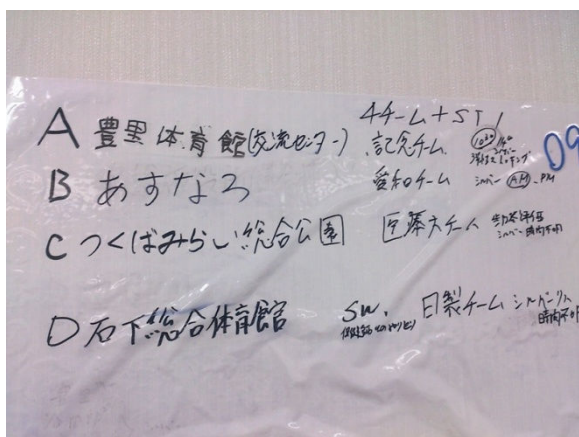 4チーム+ST
A 豊里体育館(交流センター) 記念チーム
B あすなろ 愛和チーム シルバー AM PM
C つくばみらい総合公園 医療大チーム
シルバー時間不明
D 石下総合体育館 SW. 日製チーム シルバーリハ
時間不明
09